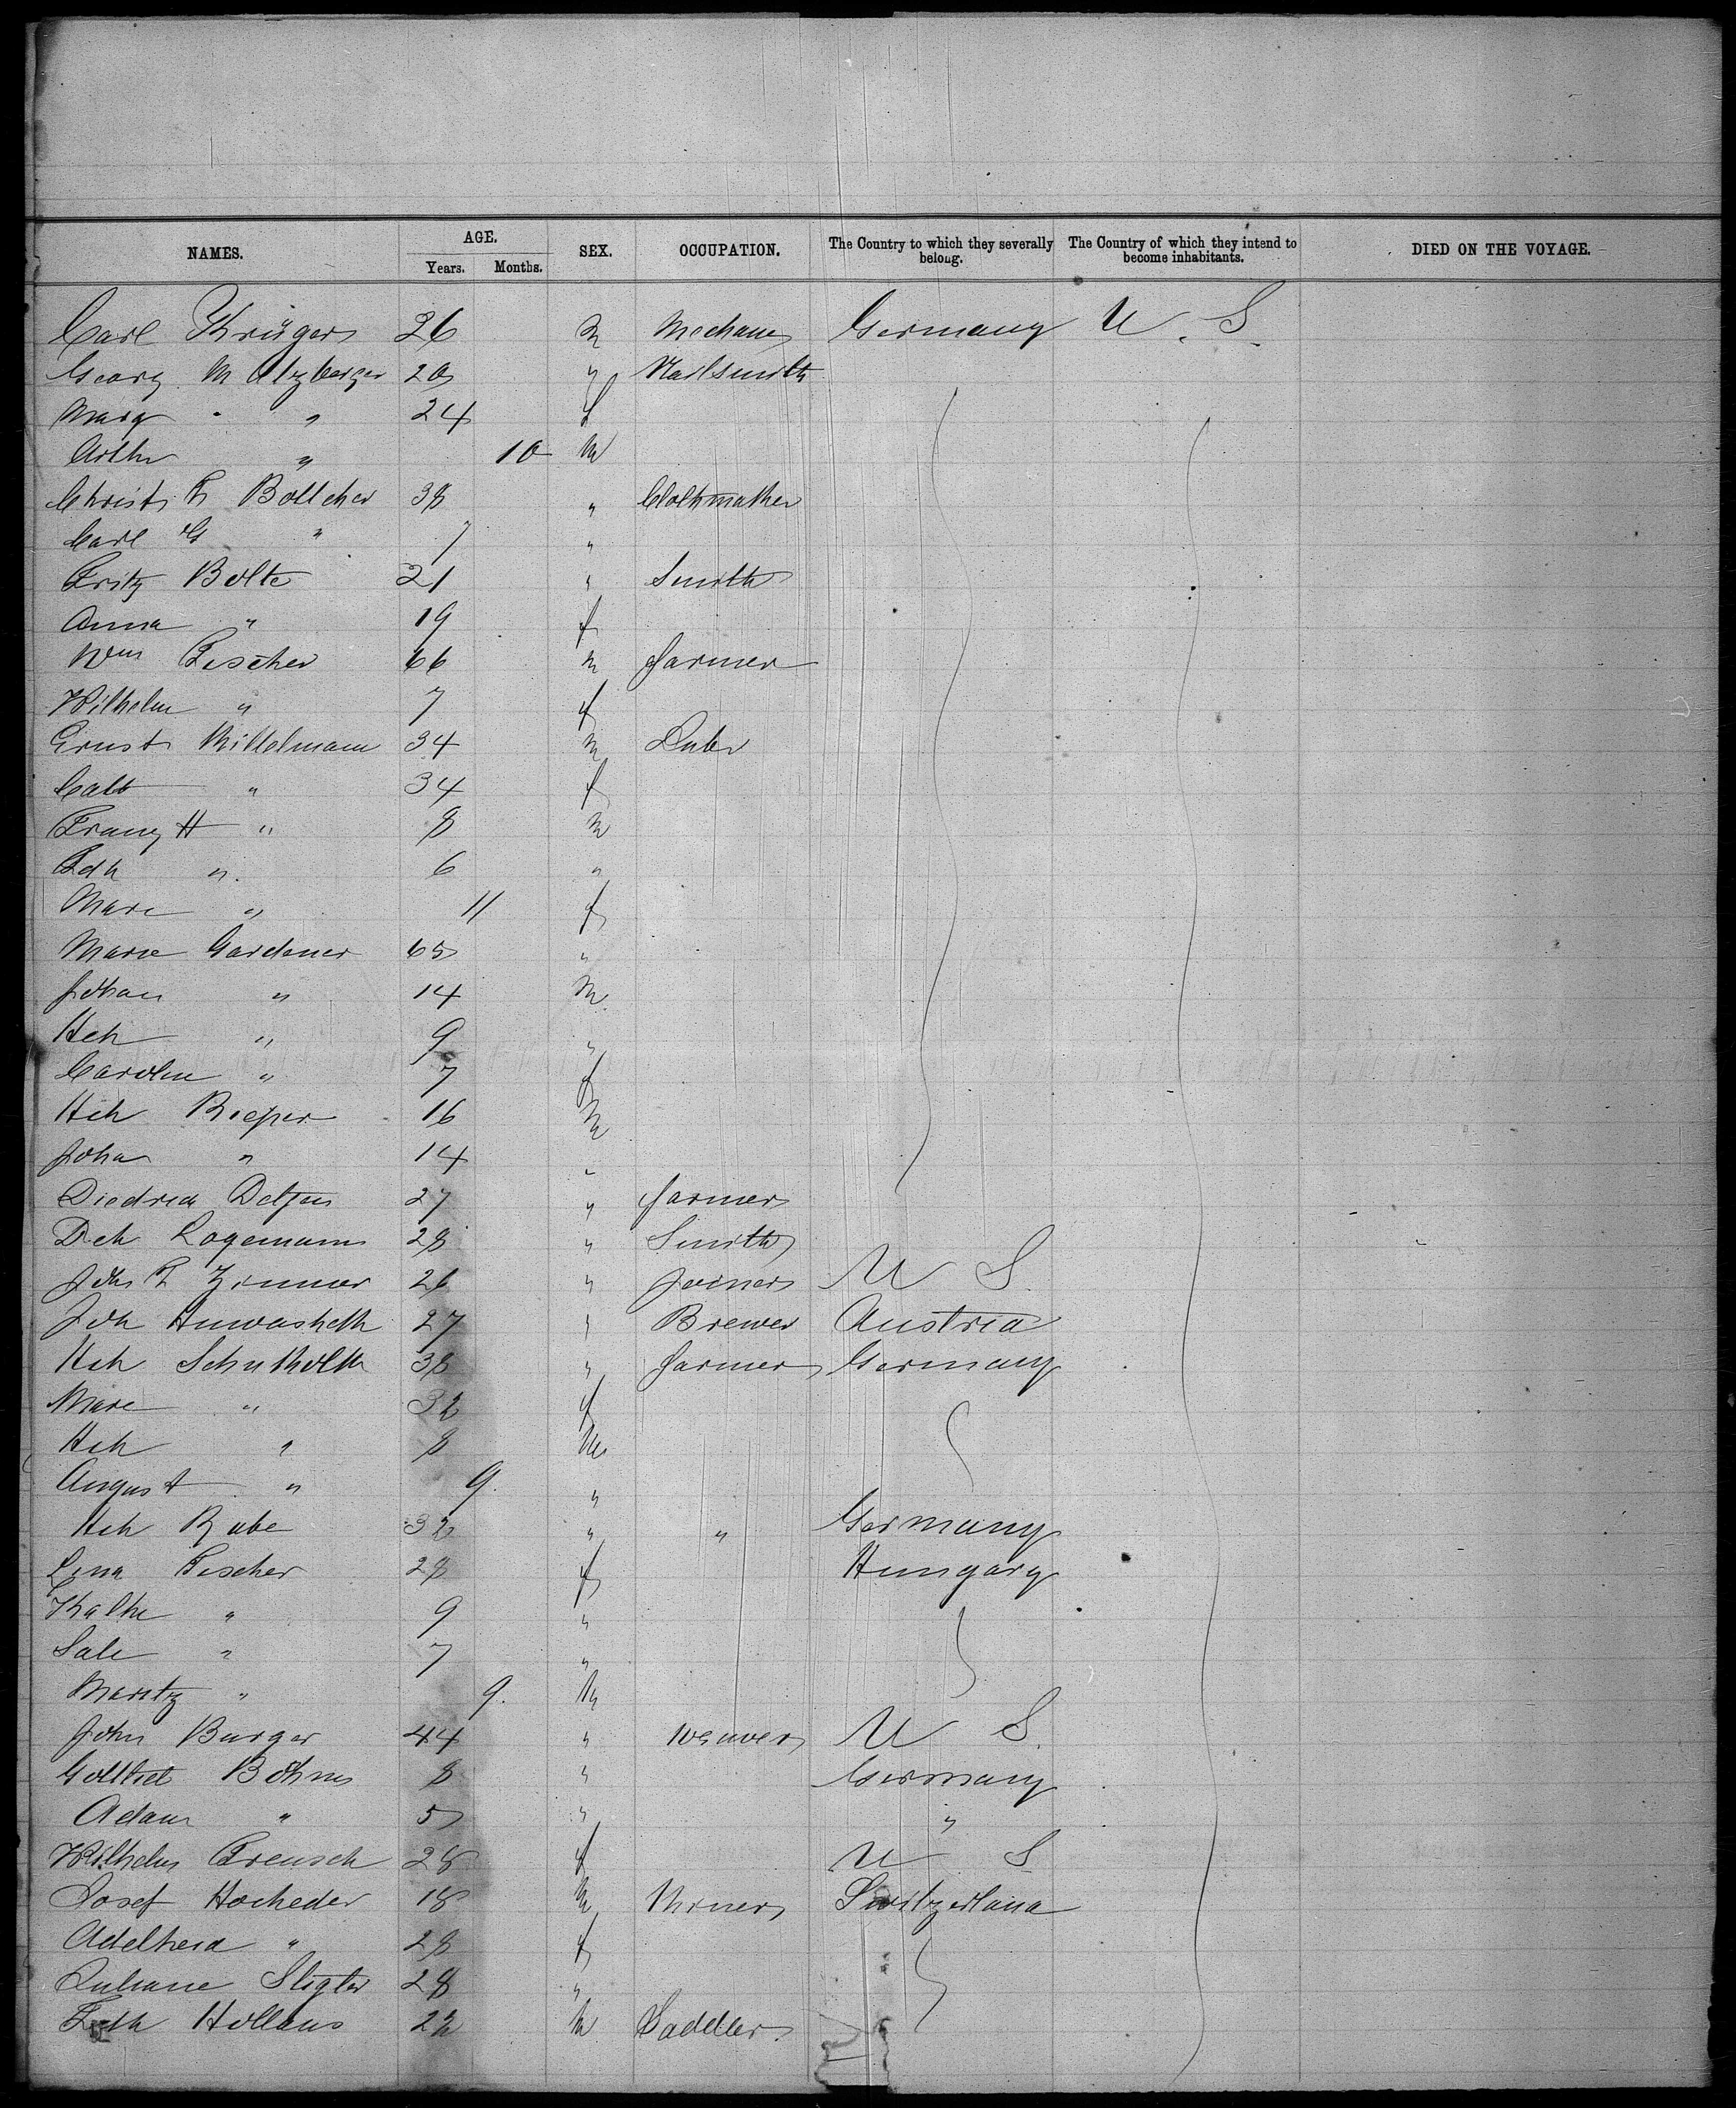 NAMES. AGE. SEX. OCCUPATION. The Country to which they severally belong. The Country of which they intend to become inhabitants. DIED ON THE VOYAGE.
Years. Months.
Carl Krüger 26 m Mechanic Germany U. S.
Georg M 20 " Nailsmith
Marg " " 24 f
Arthr " 10 m
Christ. F Bottcher 38 " Clothmaker
Carl G " 7 "
Fritz Bolte 21 " Smith
Anna " 19 f
Wm Fischer 66 m farmer
Wilhelm " 7 f
Ernst Mittelmann 34 m Labr
Cath " 34 f
Franz H " 8 m
Fdh " 6 "
Marie " 11 f
Marie Gardener 65 "
Johan " 14 m
Hch " 9 "
Carolin " 7 f
Hch Rieper 16 m
Joha " 14 "
Diedrich Detjen 27 " farmer
Dch Logemann 28 " Smith
Joh F Zimmer 26 " Joiner U S.
Joh 27 " Brewer Austria
Hch Schutholth 38 " farmer Germany
Marie " 32 f
Hch " 8 m
August " 9. "
Hch Rabe 32 " " Germany
Lina Fischer 28 f Hungary
Kathe " 9 "
Sale " 7 "
Moritz " 9. m
John Burger 44 " weaver U S.
Gottlieb Böhm 8 " Germany
Adam " 5 " "
Wilhelm Freusch 28 f U S
Josef Hocheder 18 m Miner Switzerland
Adelheid " 28 f
Juliane Stigler 28 "
Hollaus 22 m Saddler